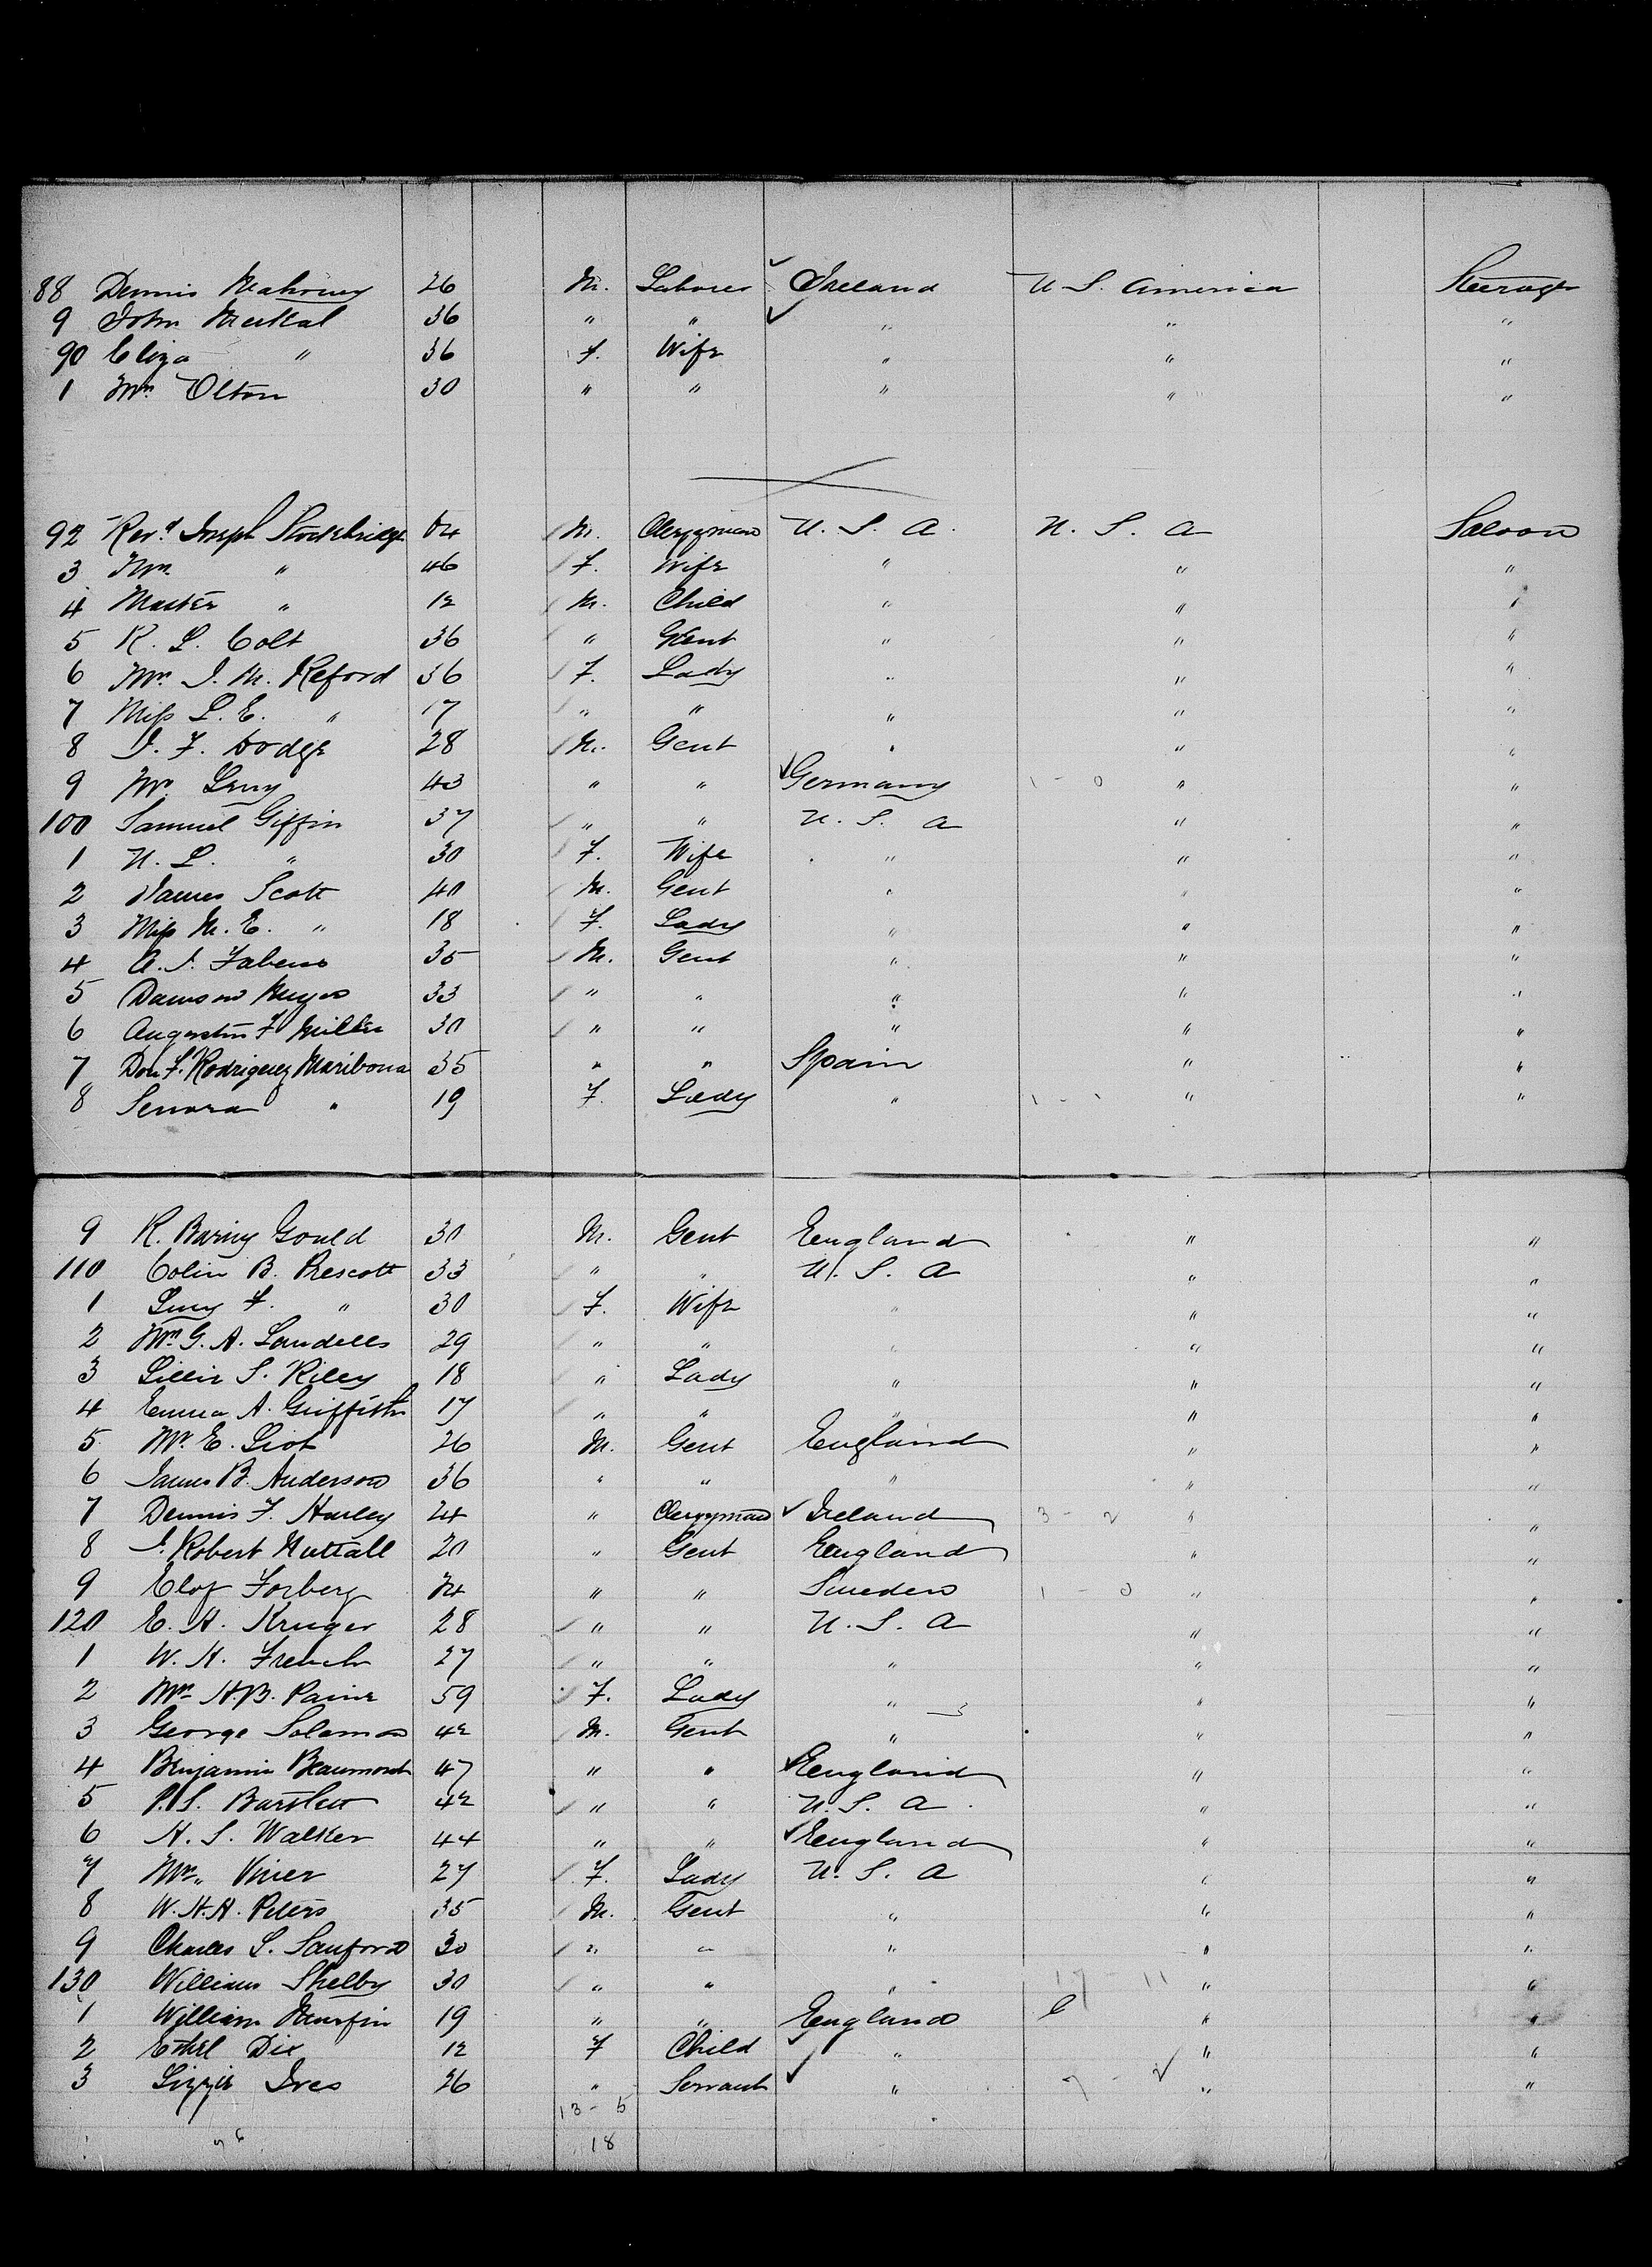 88 Dennis Mahoney 26 M. Laborer Ireland U S. America Steerage
9 John 36 " " " " "
90 Eliza " 36 f. Wife " " "
1 Mrs Olton 30 " " " " "
92 Revd Joseph Stockbridge 64 M. Clergyman U. S. A. U. S. A Saloon
3 Mrs " 46 F. Wife " " "
4 Master " 12 M. Child " " "
5 R. L. Colt 36 " Gent " " "
6 Mrs J. M. Reford 36 F. Lady " " "
7 Miss L. E. " 17 " " " " "
8 J. F. Hodge 28 M. Gent " " "
9 Mr Levy 43 " " Germany 1 - 0 " "
100 Samuel Giffin 37 " " U. S. A " "
1 N. L. " 30 F. Wife " " "
2 James Scott 40 M. Gent " " "
3 Miss M. E. " 18 F. Lady " " "
4 A. J. Fabens 35 M. Gent " " "
5 Dawson 33 " " " " "
6 Augustin F Miller 30 " " " " "
7 Don F. Rodriguez Maribona 35 " " Spain " "
8 Senora " 19 F. Lady " 1 - 1 " "
9 R. Baring Gould 30 M. Gent England " "
110 Colin B. Prescott 33 " " U. S. A " "
1 Lucy F. " 30 F. Wife " " "
2 Mrs G. A. Landells 29 " " " " "
3 Lillie S. Riley 18 " Lady " " "
4 Emma A. Griffith 17 " " " " "
5 Mr. E. Liot 26 M. Gent England " "
6 James B. Anderson 36 " " " " "
7 Dennis F. Hurley 24 " Clergyman Ireland 3 - 2 " "
8 J. Robert Nuttall 20 " Gent England " "
9 Elof Forberg 24 " " Sweden 1 - 0 " "
120 E. H. Kruger 28 " " U. S. A " "
1 W. H. French 27 " " " " "
2 Mrs H. B. Paine 59 F. Lady " " "
3 George Solomon 42 M. Gent " " "
4 Benjamin Beaumont 47 " " England " "
5 P. S. Bartlett 42 " " U. S. A. " "
6 H. S. Walker 44 " " England " "
7 Mrs Viner 27 F. Lady U. S. A " "
8 W. H. H. Peters 35 M. Gent " " "
9 Charles L. Sanford 30 " " " " "
130 William Shelby 30 " " " 17 - 11 " "
1 William 19 " " England 6 " "
2 Ethel Dix 12 F Child " " "
3 Lizzie Ives 26 " Servant " 7 - 2 " "
13 - 5
18